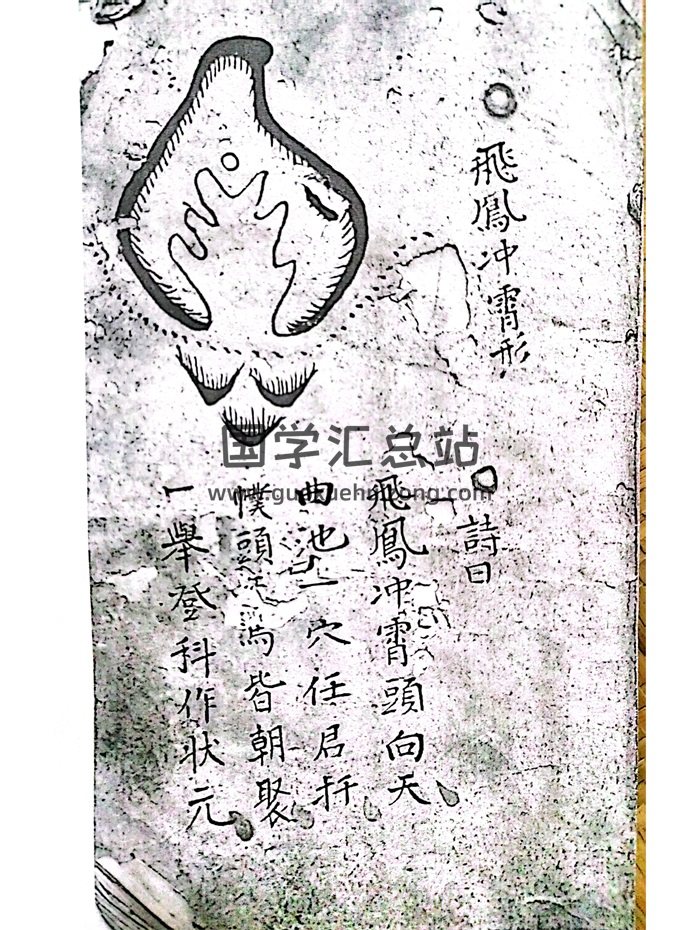 飛鳳冲霄形
詩曰
飛鳳冲霄頭向天
曲池一穴任君扦
幞頭馬皆朝聚
一舉登科作狀元
国学汇总站